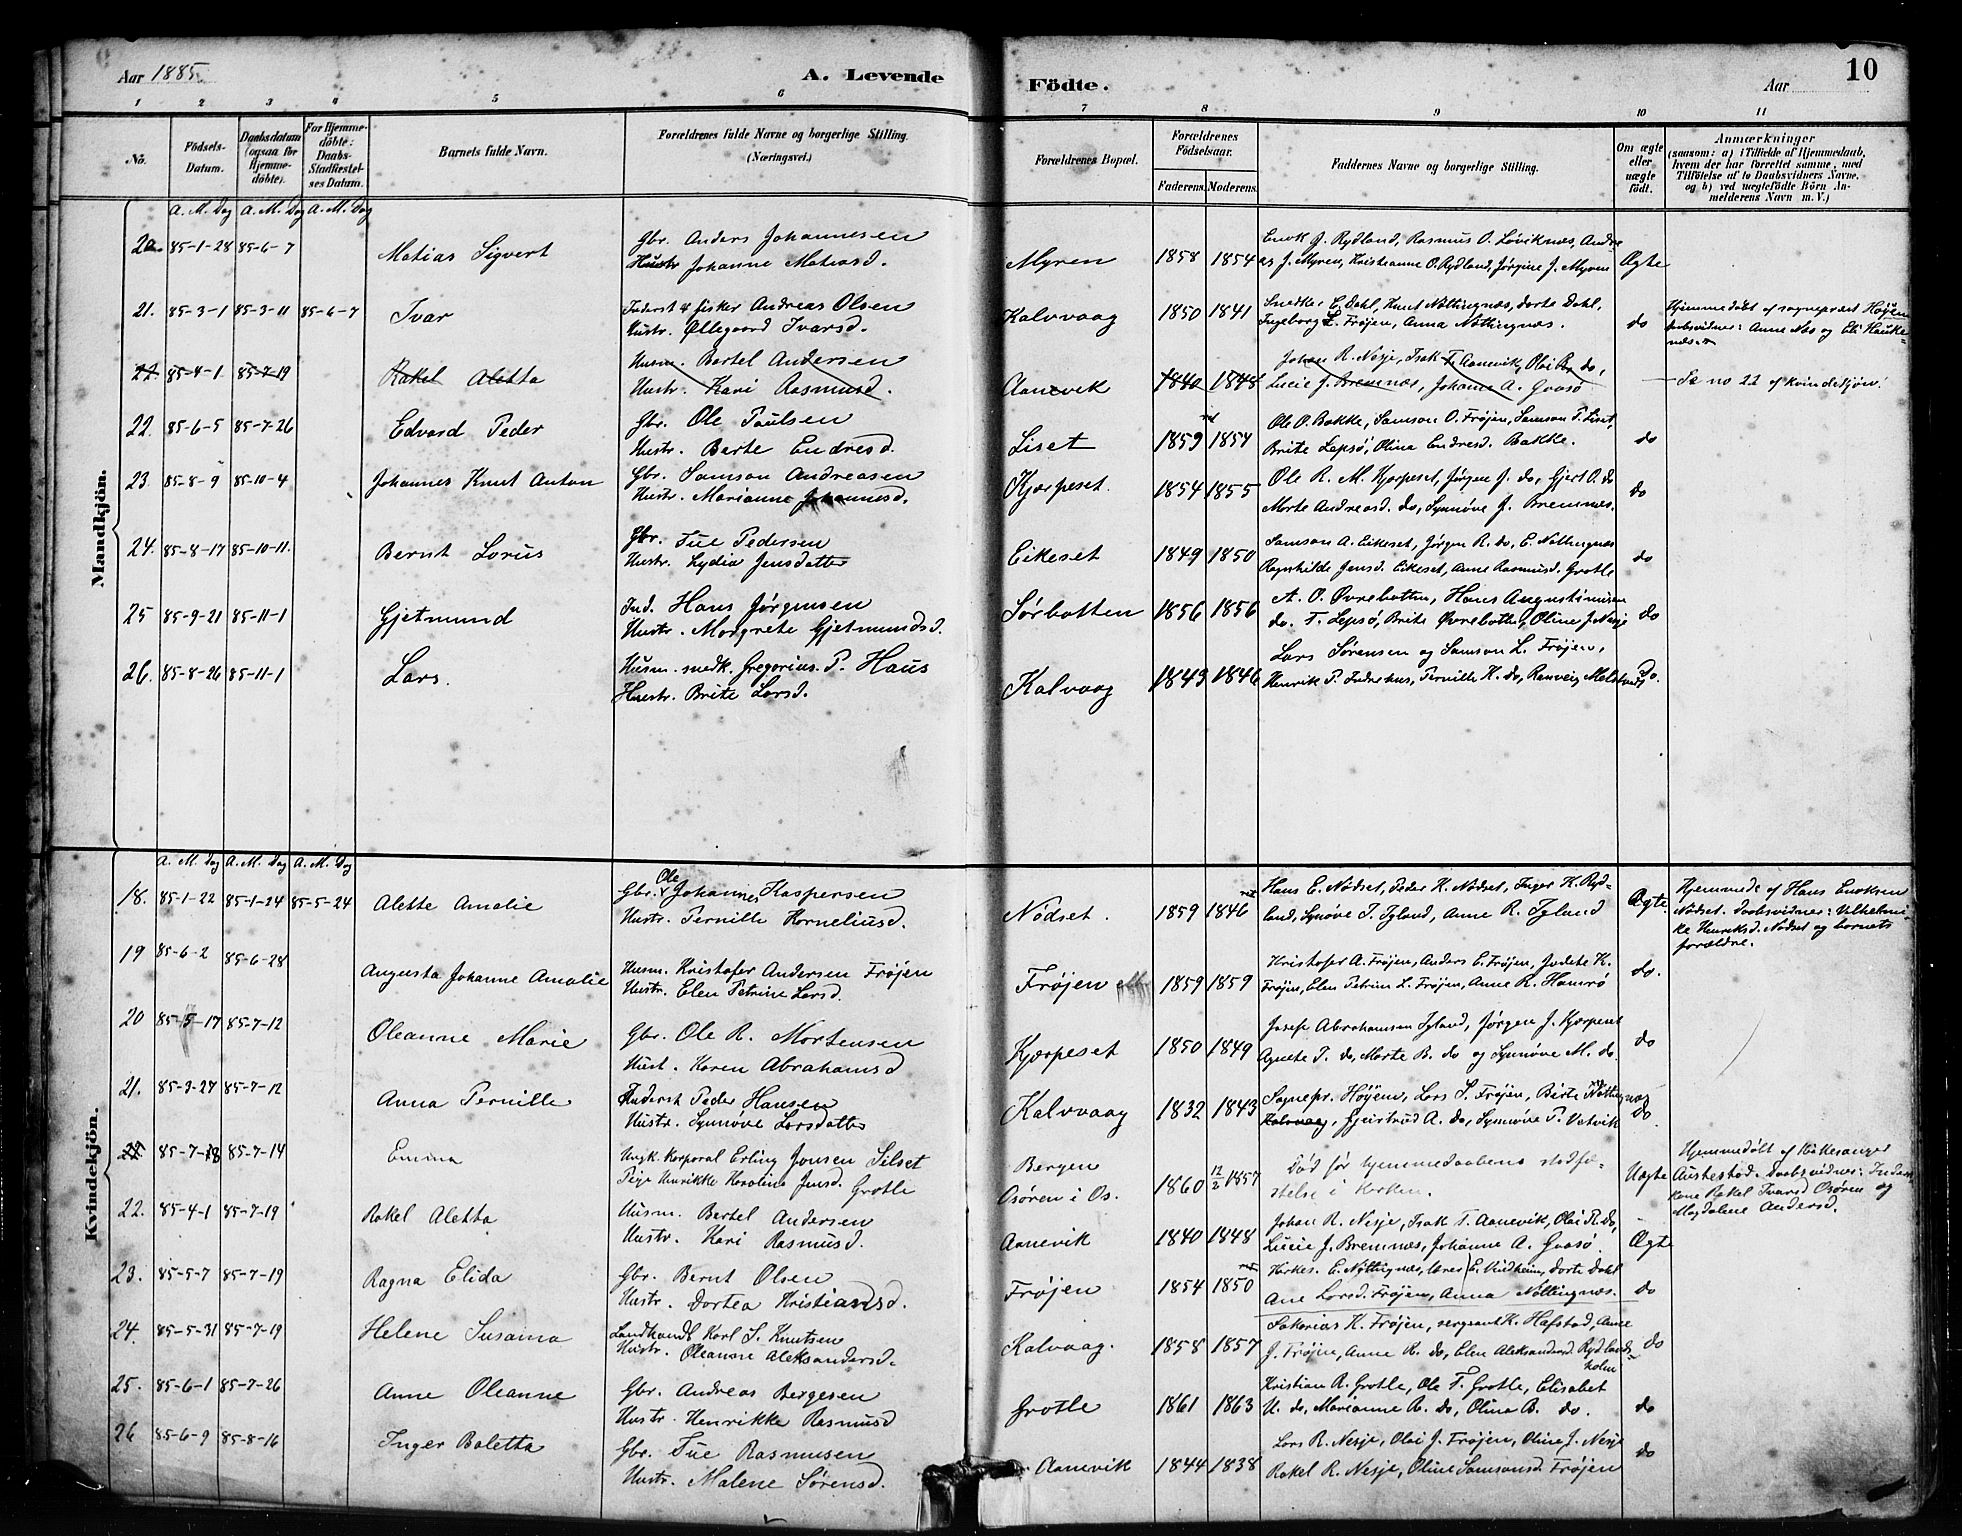 Aar 1885.
A. Levende
Födte.
Aar
10
1 2 3 4 5 6 7 8 9 10 11
No.
Födsels-Datum.
Daabsdatum (ogsaa for Hjemme-döbte).
For Hjemme-döbte: Daabs-Stadfæstel-ses Datum.
Barnets fulde Navn.
Forældrenes fulde Navne og borgerlige Stilling.
(Næringsvei.)
Forældrenes Bopæl.
Forældrenes Födselsaar.
Faderens. Moderens.
Faddernes Navne og borgerlige Stilling.
Om ægte eller uægte födt.
Anmærkninger
(saasom: a) i Tilfælde af Hjemmedaab, hvem der har forrettet samme, med Tilföielse af to Daabsvidners Navne, og b) ved uægtefödte Börn An-melderens Navn m. V.)
Mandkjön.
A. M. Dag A. M. Dag A. M. Dag
20. 85-1-28 85-6-7 Matias Sigvert
Gbr. Anders Johannesen
Hustr Johanne Matiasd.
Myren 1858 1854
Enok J. Rydland, Rasmus O. Løviknæs, Andre
as J. Myren, Kristianne O. Rydland, Jørgine J. Myren
Ægte
21. 85-3-1 85-3-11 85-6-7 Ivar
Inderst & fisker Andreas Olsen
Hustr. Øllegaard Ivarsd.
Kalvaag 1850 1841
Snedker E. Dahl, Knut Nøttingnæs, Dorte Dahl,
Ingeborg L. Frøjen, Anna Nøttingnæs.
do
Hjemmedøbt af sognepræst Høyem
Daabsvidner: Anne Nes og Eli Hauke-
næs.
22 85-4-1 85-7-19 Rakel Aletta
Husm. Bertel Andersen
Hustr. Kari Rasmusd.
Aanevik 1840 1848
Johan R. Nesje, Isak T. Aanevik, Olai R. do,
Lucie J. Bremnæs, Johanne A. Gvasø
Se no 22 af kvindekjøn.
22. 85-6-5 85-7-26 Edvard Peder
Gbr. Ole Paulsen
Hustr. Berte Endresd.
Liset 1859 1854
Ole O. Bakke, Samson O. Frøjen, Samson P. Liset,
Brite Lepsø, Olina Endresd. Bakke.
do
23. 85-8-9 85-10-4 Johannes Knut Anton
Gbr. Samson Andreasen
Hustr. Marianne Johannesd.
Kjerpeset. 1854 1855
Ole R. M. Kjerpeset, Jørgen J. do, Gjert O. do
Marte Andreasd. do, Synnøve J. Bremnes.
do
24. 85-8-17 85-10-11. Bernt Lorus
Gbr. Tue Pedersen
Hustr. Lydia Jensdatter
Eikeset 1849 1850
Samson A. Eikeset, Jørgen R. do, E. Nøttingnæs
Ragnhilde Jensd. Eikeset, Anne Rasmusd. Grotle
do
25 85-9-21 85-11-1 Gjetmund
Ind. Hans Jørgensen
Hustr. Margrete Gjetmundsd.
Sørbotten 1856 1856
A. O. Øvrebotten, Hans Augustinusen
do. F. Lepsø, Brite Øvrebotten, Oline J. Nesje
do
26. 85-8-26 85-11-1 Lars.
Husm. medk. Gregorius P. Haus
Hustr. Brite Larsd.
Kalvaag 1843 1846
Lars Sørensen og Samson L. Frøjen,
Henrik P. Indrehus, Pernille H. do, Ranveig
do.
Kvindekjön.
A. M. Dag A. M. Dag A. M. Dag
18. 85-1-22 85-1-24 85-5-24 Alette Amalie
Gbr. Ole Johannes Kaspersen
Hustr. Pernille Korneliusd.
Nødset. 1859 1846
Hans E. Nødset, Peder H. Nødset, Inger K. Ryd-
land, Synøve T. Igland, Anne R. Igland
Ægte.
Hjemmedø af Hans Enoksen
Nødset. Daabsvidner: Vilhelmi-
ke Henriksd. Nødset og barnets
forældre.
19 85-6-2 85-6-28 Augusta Johanne Amalie
Husm. Kristofer Andersen Frøjen
Hustr. Elen Petrine Larsd.
Frøjen 1859 1859
Kristofer A. Frøjen, Anders E. Frøjen, Judete K.
Frøjen, Elen Petrine L. Frøjen, Anne K. Hamrø
do.
20 85-5-17 85-7-12 Oleanne Marie
Gbr. Ole R. Mortensen
Hust. Karen Abrahamsd
Kjerpeset 1850 1849
Josef Abrahamsen Igland, Jørgen J. Kjerpeset
Agnete T. do, Marte B. do og Synnøve M. do.
do
21. 85-3-27 85-7-12 Anna Pernille
Inderst Peder Hansen
Hustr. Synnøve Larsdatter
Kalvaag 1832 1843
Sognepr. Høyem, Lars S. Frøjen, Birte Nøttingnæs
Kalvaag, Gjertrud A. do, Synnøve P. Vetvik
do.
22 85-7-18 85-7-14 Emma
Ungk. Korporal Erling Jonsen Silset
Pige Henrikke Karoline Jensd. Grotle
Bergen
Osøren i Os.
1860 12/2 1857
Død før hjemmedaabens stadfæ-
stelse i kirken.
Uægte
Hjemmedøbt af Kirkesanger
Austestad. Daabsvidner: Inder-
kone Rakel Ivarsd Osøren og
Magdalene Andersd.
22. 85-4-1 85-7-19 Rakel Aletta
Husm. Bertel Andersen
Hustr. Kari Rasmusd.
Aanevik 1840 1848
Johan R. Nesje, Isak T. Aanevik, Olai R. do,
Lucie J. Bremnæs, Johanne A. Gvasø.
Ægte
23. 85-5-7 85-7-19 Ragna Elida
Gbr. Bernt Olsen
Hustr. Dortea Kristiansd.
Frøjen 1854 1850
Kirkes. E. Nøttingnæs, lærer E. Vindheim, Dorte Dahl
Ane Larsd. Frøjen, Anna Nøttingnæs.
do
24. 85-5-31 85-7-19 Helene Susanna
Landhandl Karl S. Knutsen
Hustr. Oleanne Aleksandersd.
Kalvaag. 1858 1857
Sakarias K. Frøjen, sergeant K. Hafstad, Anne
J. Frøjen, Anne R. do, Elen Aleksandersd Rydlands-
holm
do
25. 85-6-1 85-7-26 Anne Oleanne
Gbr. Andreas Bergesen
Hustr. Henrikke Rasmusd
Grotle 1861 1863
Kristian R. Grotle, Ole T. Grotle, Elisabet
U. do, Marianne R. do, Olina B. do.
do
26 85-6-9 85-8-16 Inger Boletta
Gbr. Tue Rasmusen
Hustr. Malene Sørensd.
Aanevik 1844 1838
Lars R. Nesje, Olai J. Frøjen, Oline J. Nesje
Rakel R. Nesje, Oline Samsonsd. Frøjen
do